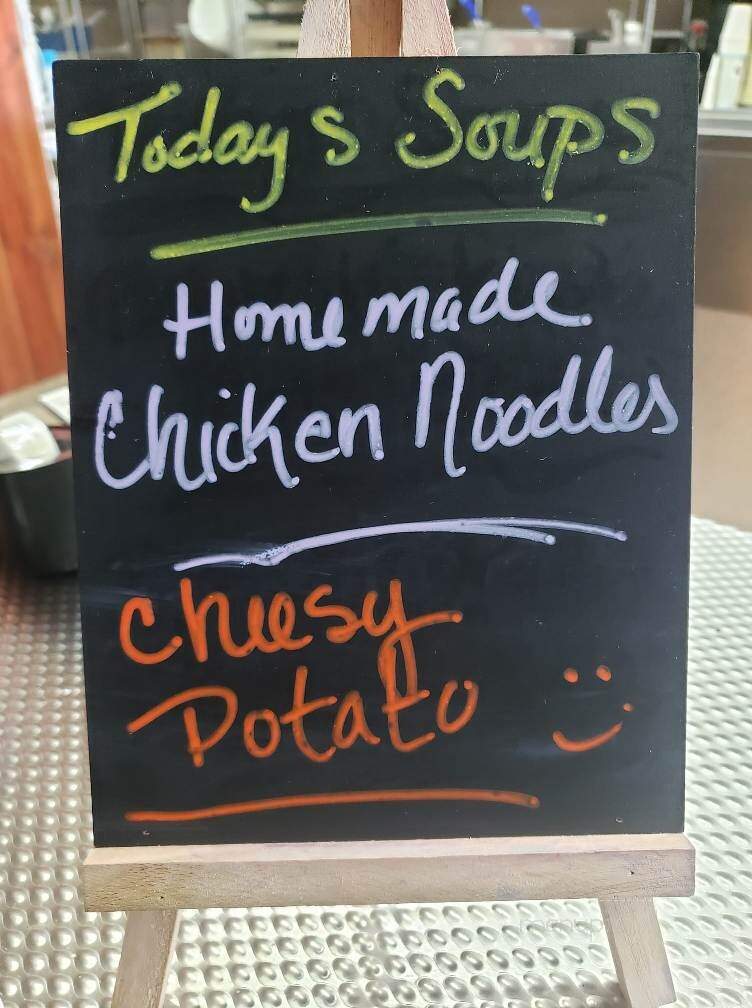 Today s Soups
Homemade
Chicken Noodles
Cheesy
Potato